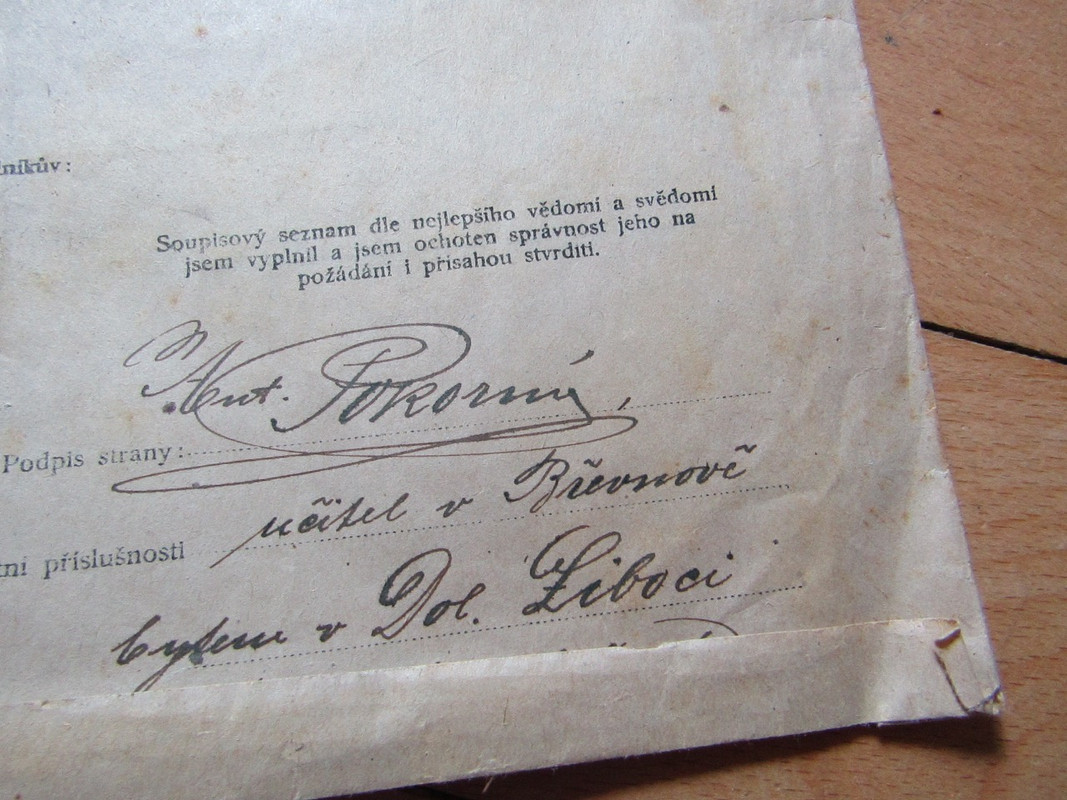 níkův:
Soupisový seznam dle nejlepšího vědomí a svědomí
jsem vyplnil a jsem ochoten správnost jeho na
požádání i přísahou stvrditi.
Ant. Pokorný,
Podpis strany:
učitel v Břevnově
tní příslušnosti
bytem v Dol. Liboci